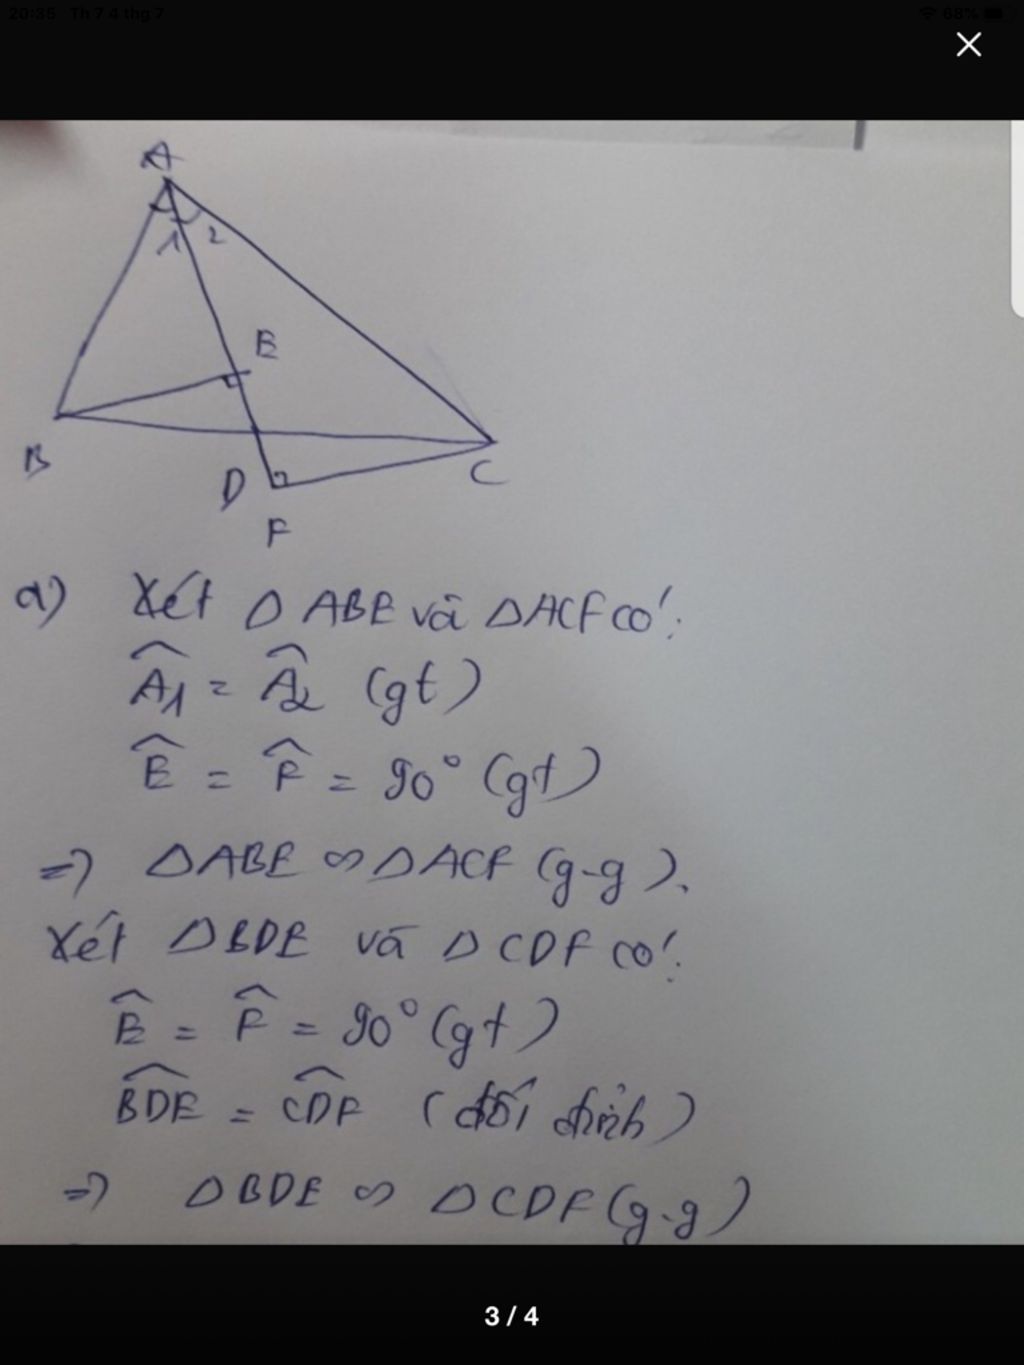 20:35 Th 7 4 thg 7
68%
A
1 2
E
B
D
C
F
a) Xét △ ABE và △ACF có:
Â1 = Â2 (gt)
Ê = F̂ = 90° (gt)
=> △ABE ∽ △ACF (g-g).
Xét △BDE và △CDF có:
Ê = F̂ = 90° (gt)
B͡DE = C͡DF (đối đỉnh)
=> △BDE ∽ △CDF (g-g)
3 / 4